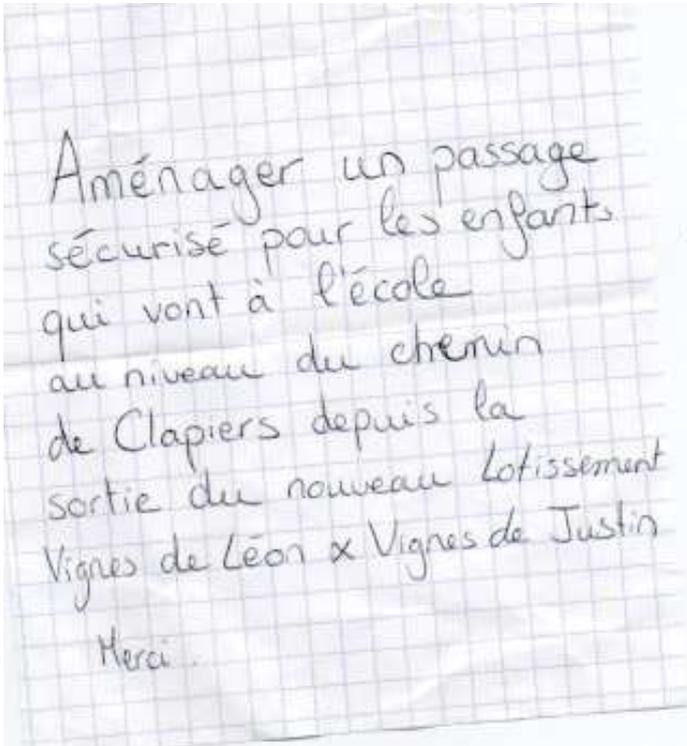 Aménager un passage
sécurisé pour les enfants
qui vont à l'école
au niveau du chemin
de Clapiers depuis la
sortie du nouveau Lotissement
Vignes de Léon x Vignes de Justin
Merci.